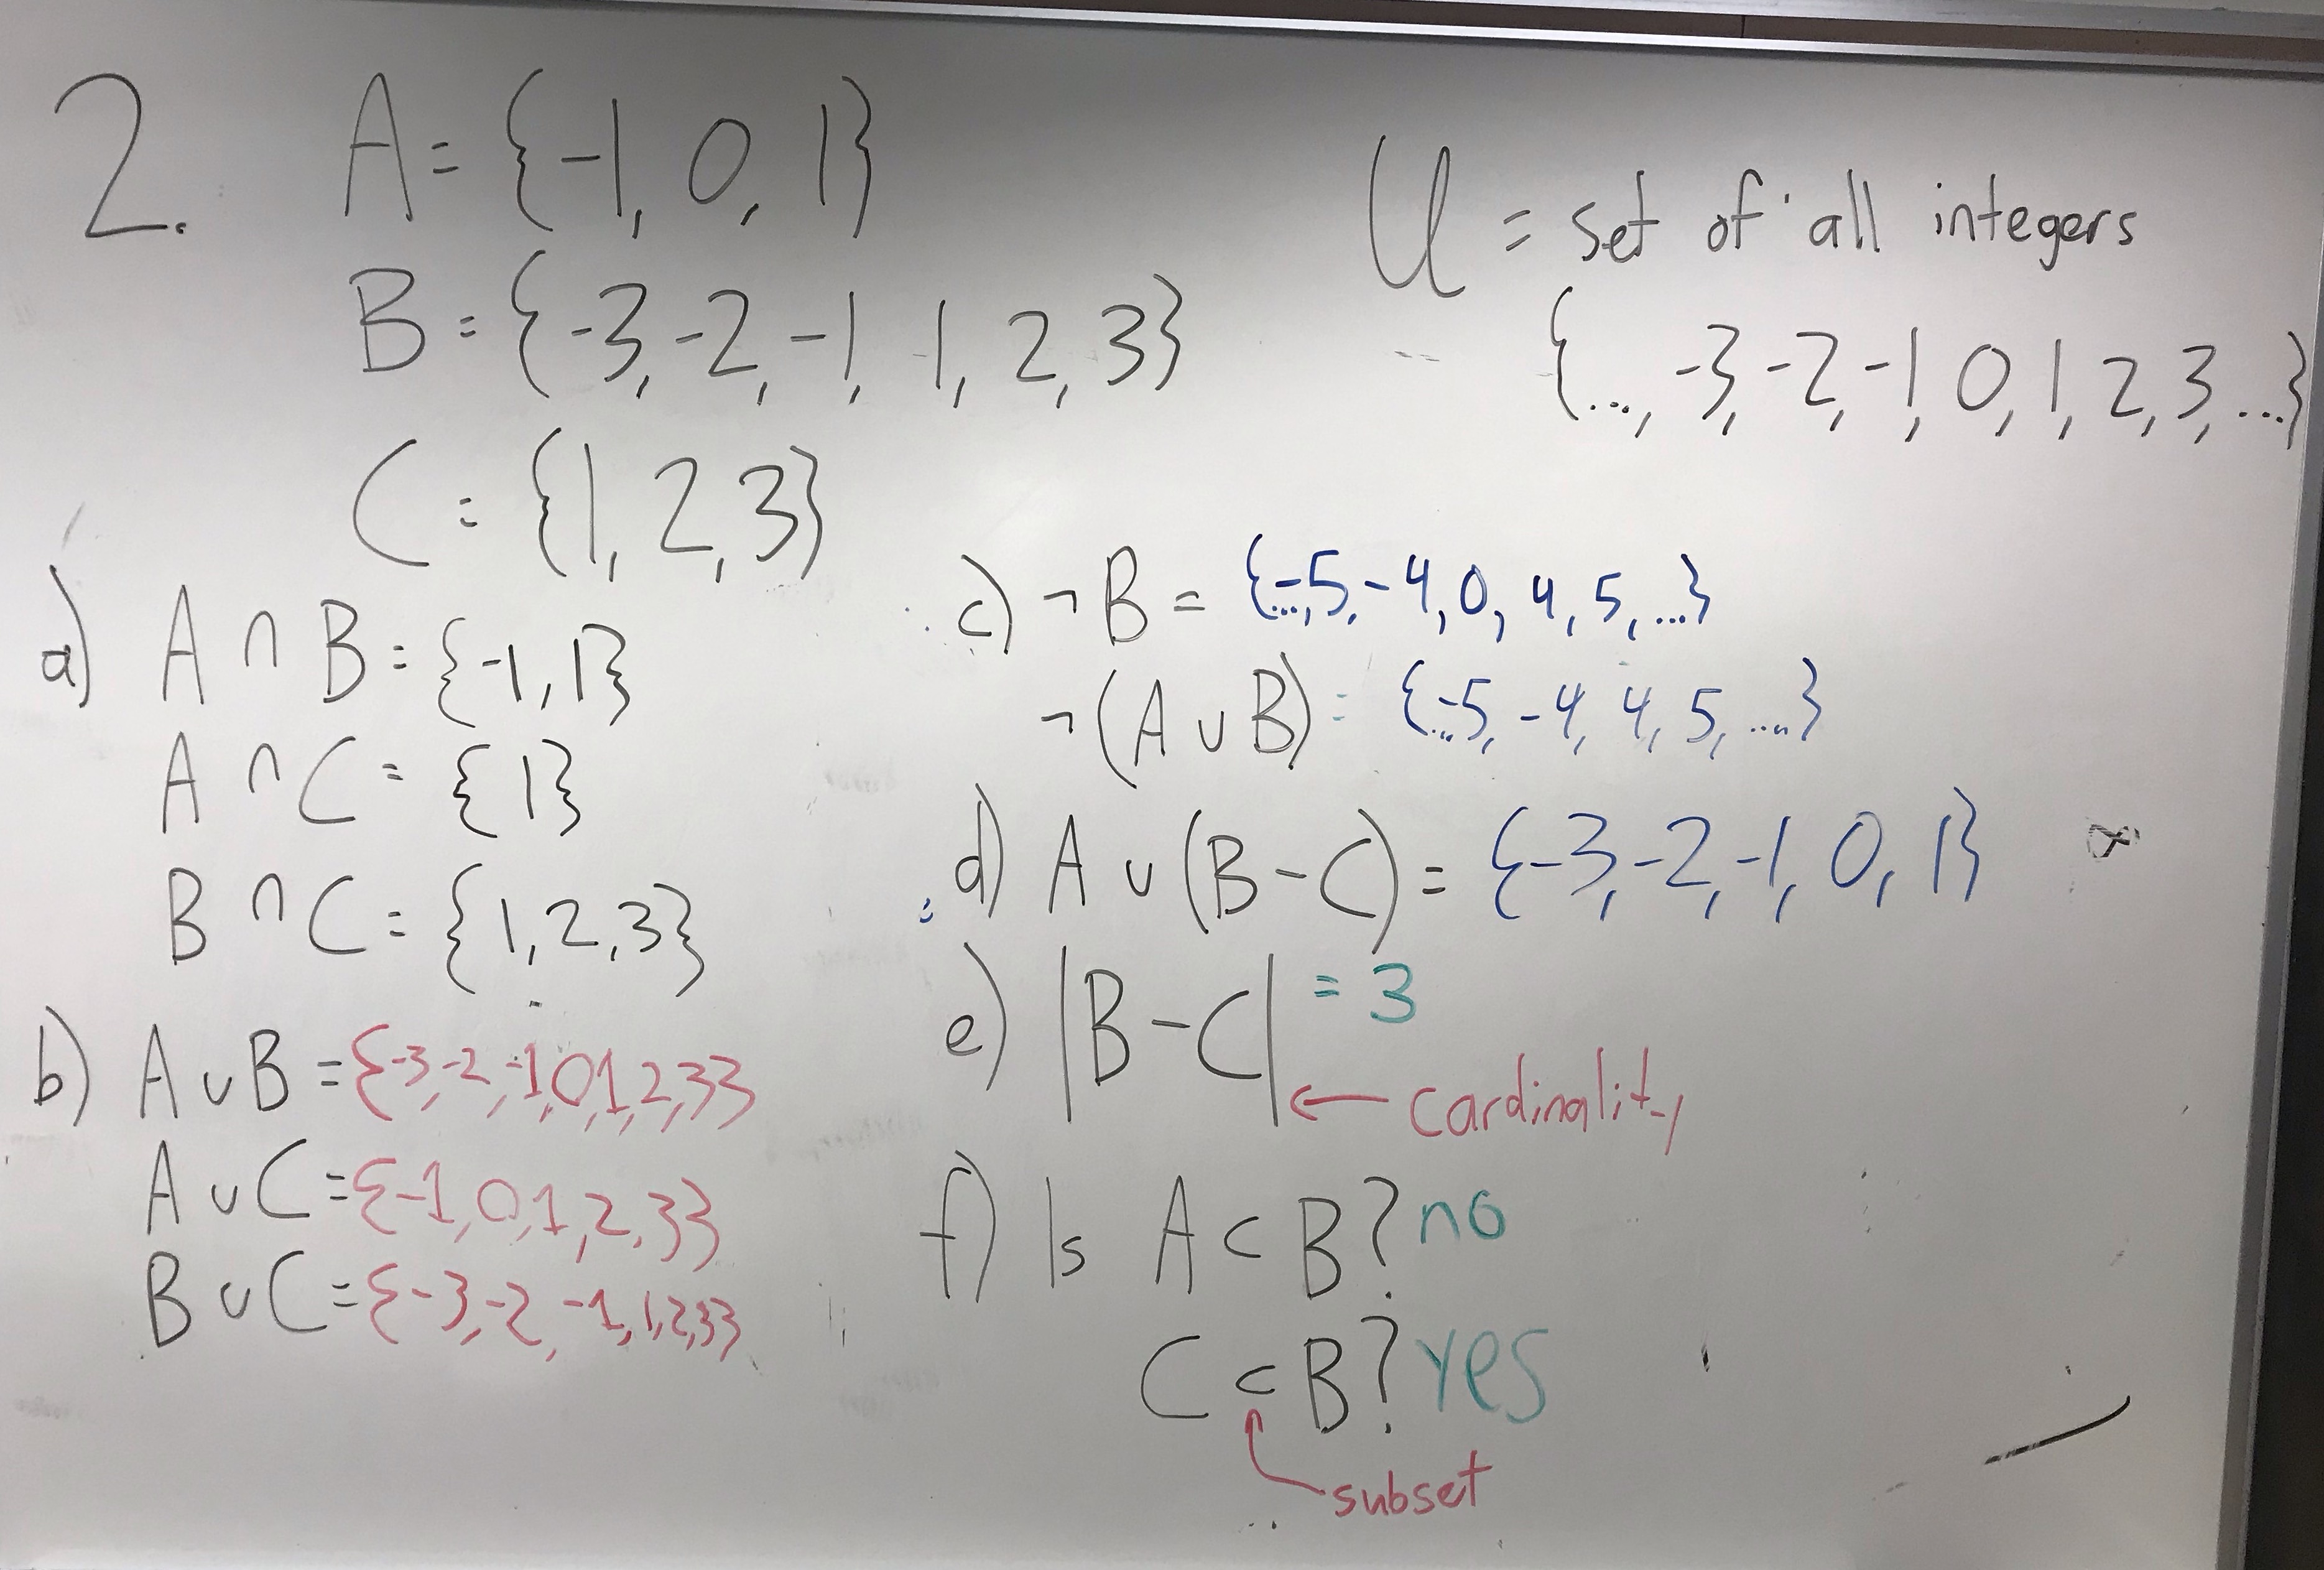 2. A = {-1, 0, 1}
B = {-3, -2, -1, 1, 2, 3}
C = {1, 2, 3}
U = set of all integers
{..., -3, -2, -1, 0, 1, 2, 3, ...}
a) A ∩ B = {-1, 1}
A ∩ C = {1}
B ∩ C = {1, 2, 3}
b) A ∪ B = {-3, -2, -1, 0, 1, 2, 3}
A ∪ C = {-1, 0, 1, 2, 3}
B ∪ C = {-3, -2, -1, 1, 2, 3}
c) ¬B = {..., -5, -4, 0, 4, 5, ...}
¬(A ∪ B) = {... -5, -4, 4, 5, ...}
d) A ∪ (B - C) = {-3, -2, -1, 0, 1}
e) |B - C| = 3
← cardinality
f) Is A ⊂ B? no
C ⊂ B? yes
subset